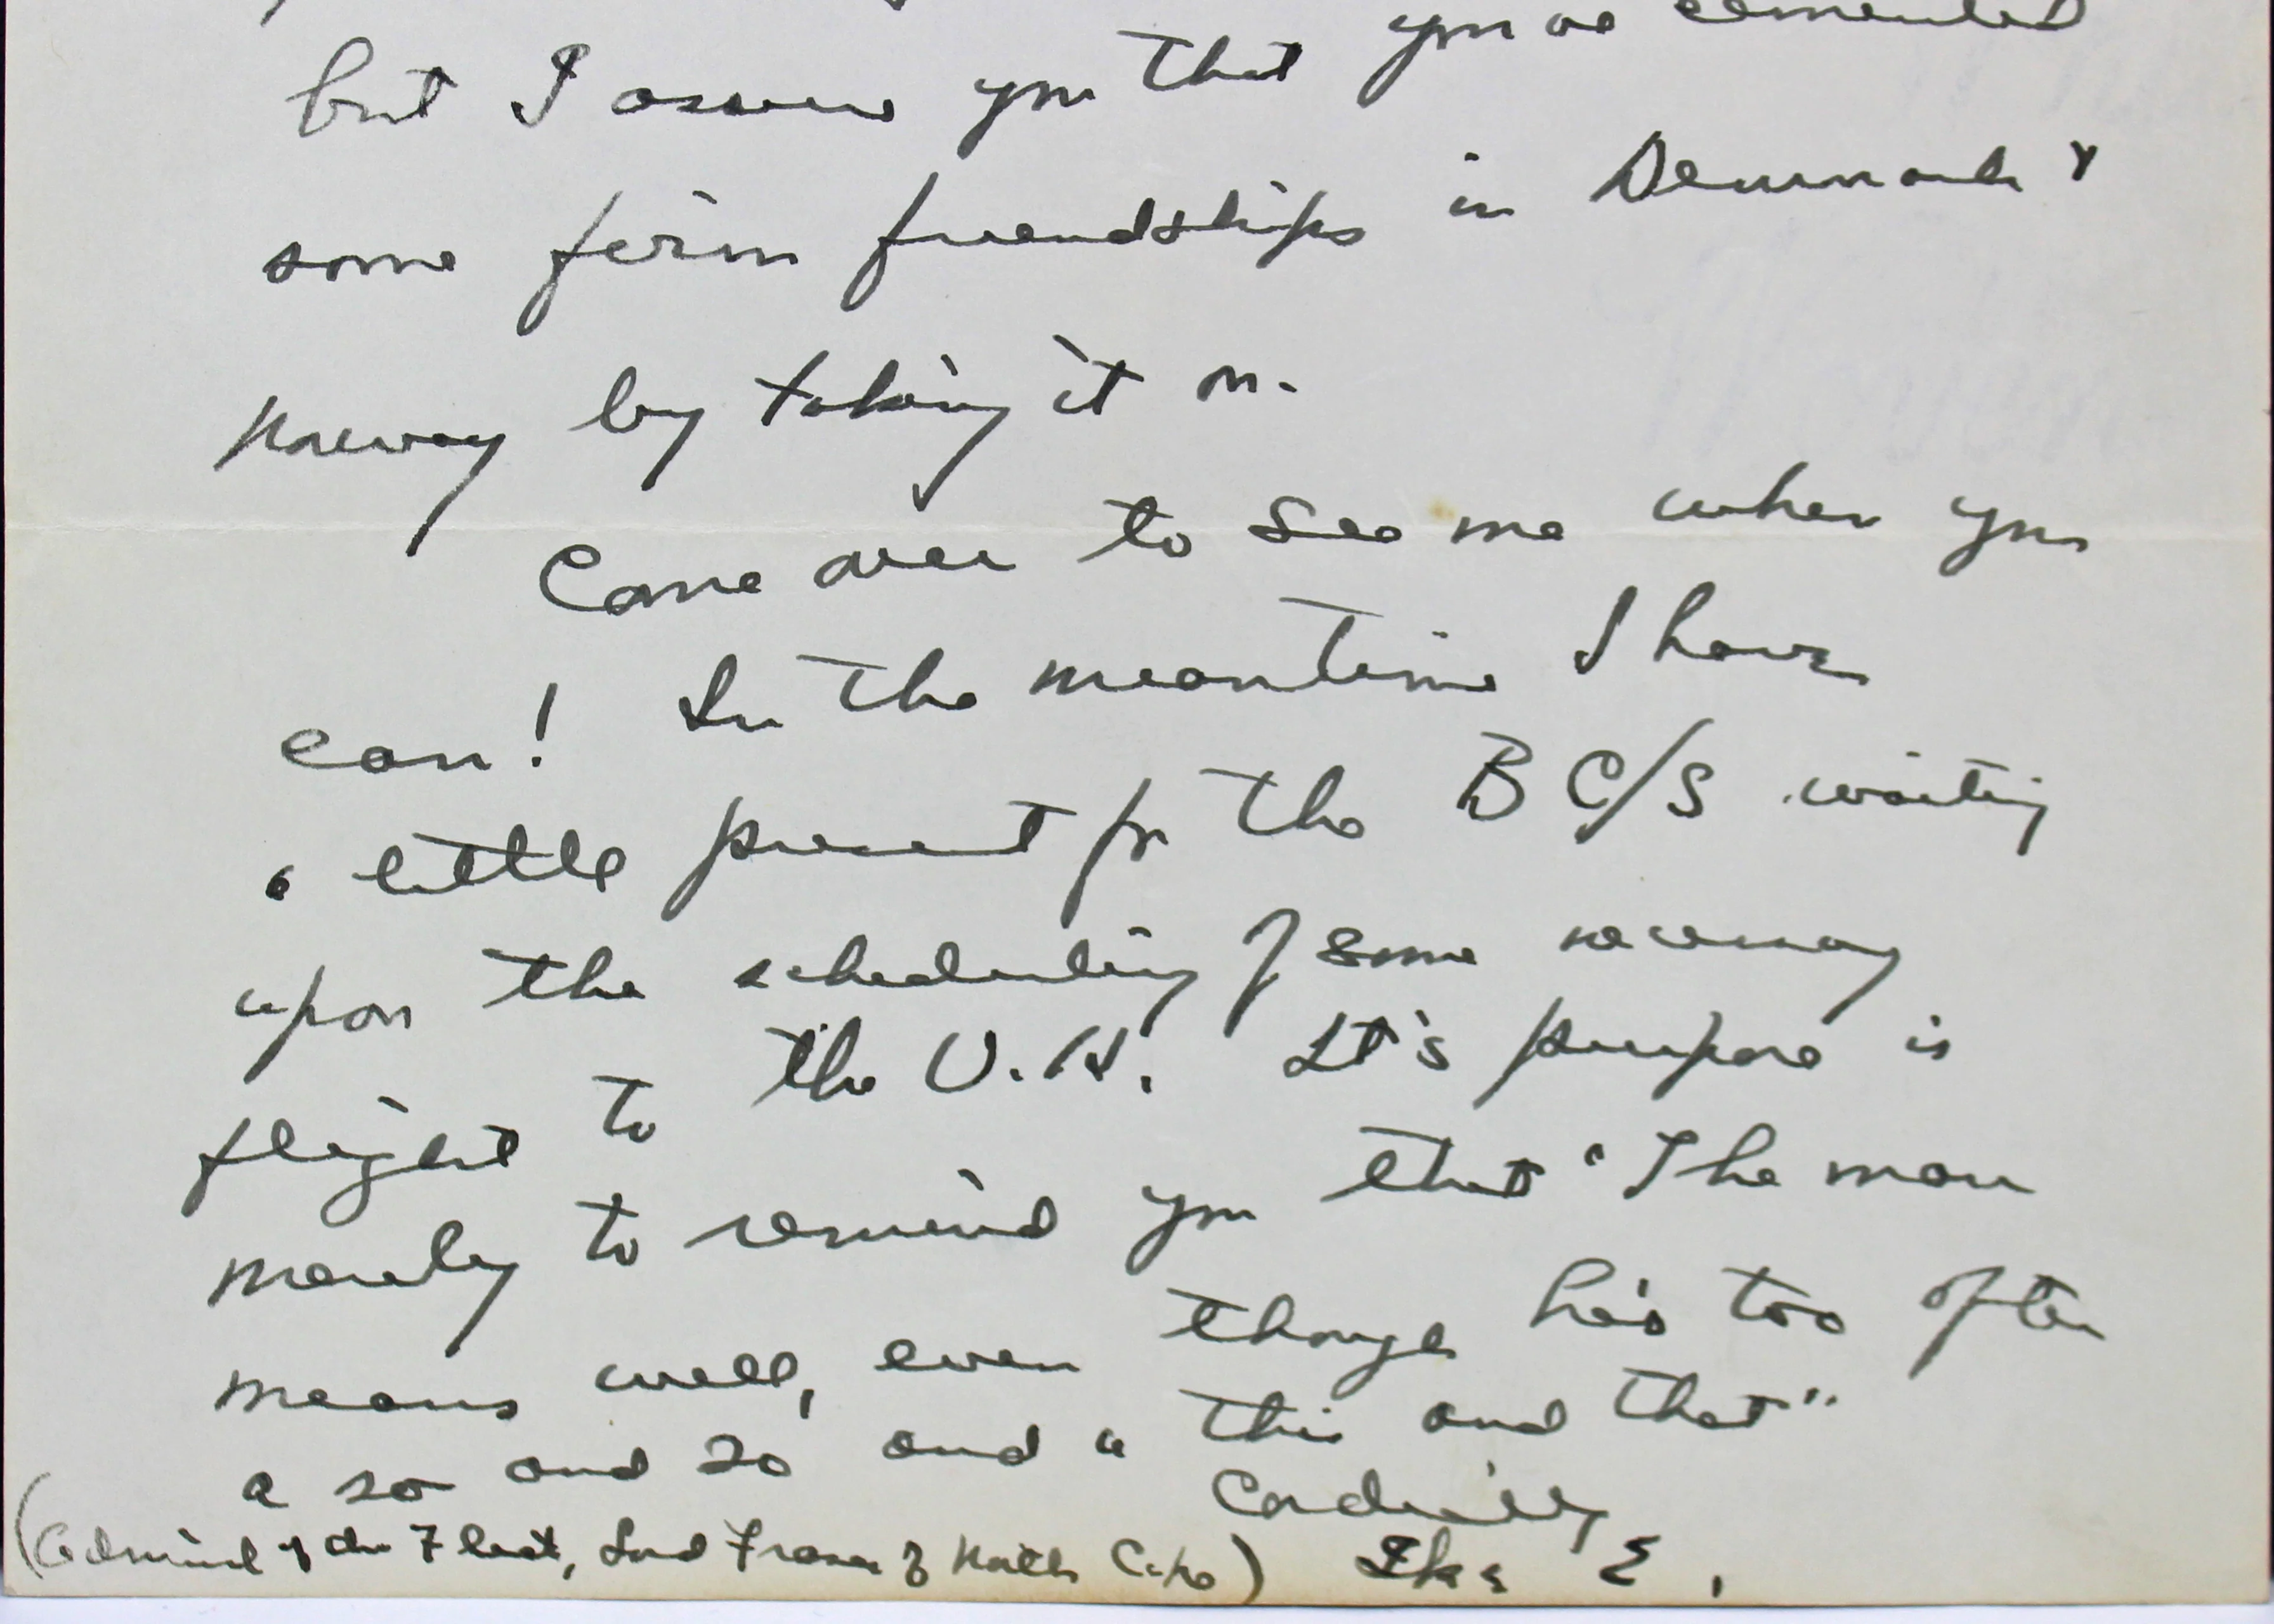 but I assure you that you've cemented
some firm friendships in Denmark &
Norway by taking it on.
Come over to see me when you
can! In the meantime I have
a little present for the B C/S waiting
upon the scheduling of some necessary
flight to the U.K. It's purpose is
merely to remind you that "The man
means well, even though he's too often
a so and so and a "this and that"
Cordially
(Admiral of the Fleet, Lord Fraser of North Cape) Ike E.